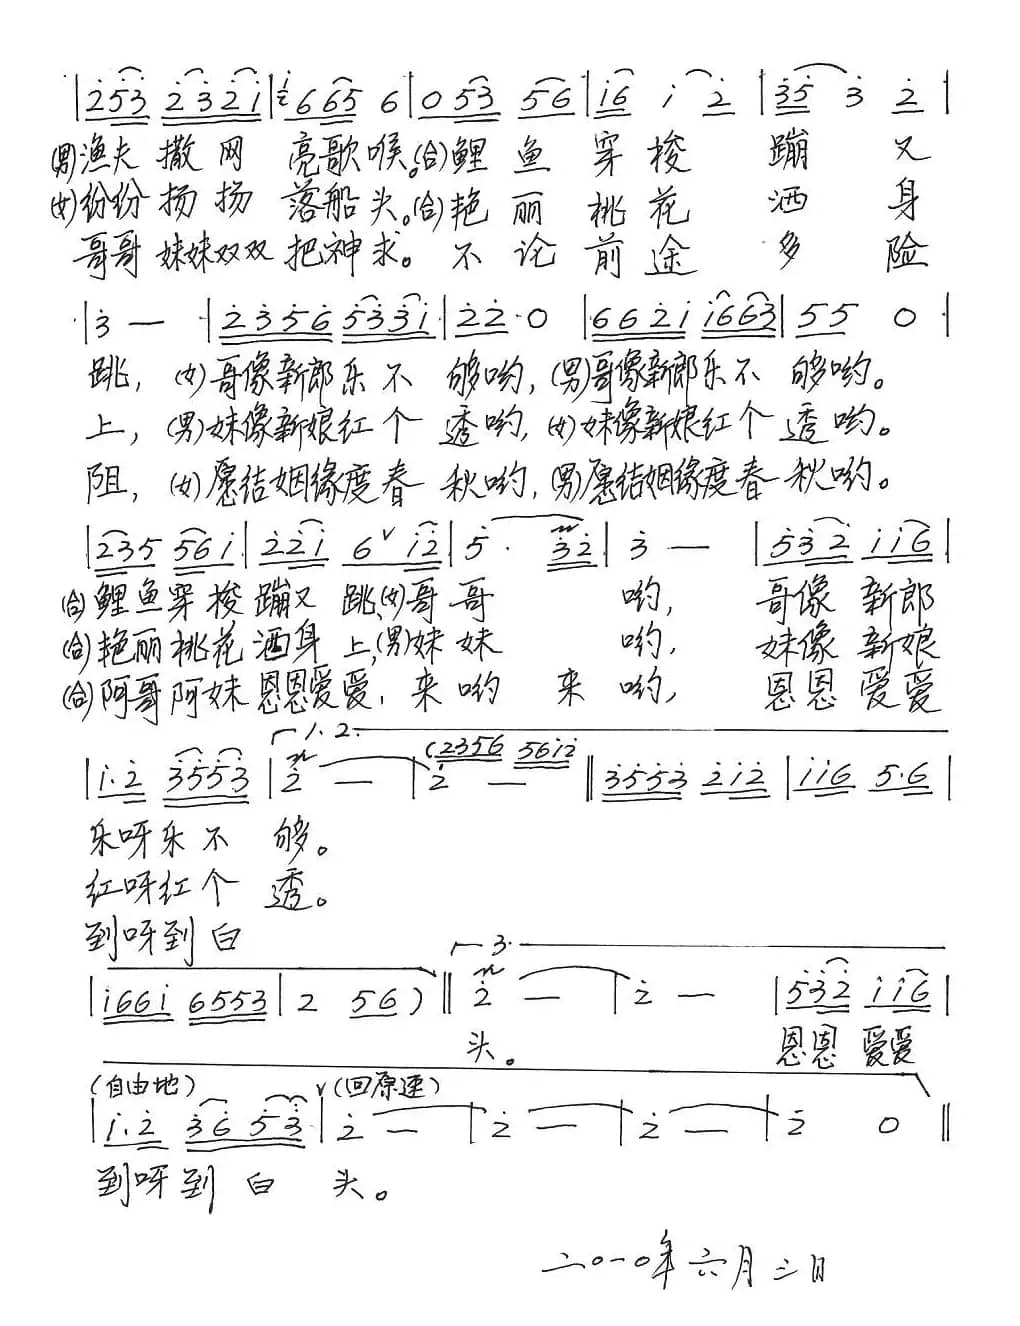 | 2 5 3 2 3 2 1 | i/2 6 6 5 6 | 0 5 3 5 6 | i 6 i 2 | 3 5 3 2 |
(男)渔夫 撒 网 亮歌喉。(合)鲤 鱼 穿 梭 蹦 又
(女)纷纷 扬 扬 落船头。(合)艳 丽 桃 花 洒 身
哥哥 妹妹双双 把神求。 不 论 前 途 多 险
| 3 — | 2 3 5 6 5 3 3 i | 2 2 0 | 6 6 2 i i 6 6 3 | 5 5 0 |
跳, (女)哥像新郎乐 不 够哟, (男)哥像新郎乐不 够哟。
上, (男)妹像新娘红 个 透哟, (女)妹像新娘红个 透哟。
阻, (女)愿结姻缘度春 秋哟, (男)愿结姻缘度春 秋哟。
| 2 3 5 5 6 i | 2 2 i 6 ∨ i 2 | 5 · 3 2 | 3 — | 5 3 2 i i 6 |
(合)鲤鱼穿梭蹦又 跳,(女)哥 哥 哟, 哥像 新郎
(合)艳丽桃花洒身 上,(男)妹 妹 哟, 妹像 新娘
(合)阿哥阿妹恩恩爱爱, 来 哟 来 哟, 恩恩 爱爱
1. 2.
| i · 2 3 5 5 3 | 2 — | 2 — (2 3 5 6 5 6 i 2 || 3 5 5 3 2 i 2 | i i 6 5 · 6 |
乐呀乐 不 够。
红呀红 个 透。
到呀到 白
3.
| i 6 6 i 6 5 5 3 | 2 5 6 ) || 2 — | 2 — | 5 3 2 i i 6 |
头。 恩恩 爱爱
(自由地) ∨ (回原速)
| i · 2 3 6 5 3 | 2 — | 2 — | 2 — | 2 0 ||
到呀到 白 头。
二〇一〇年六月三日